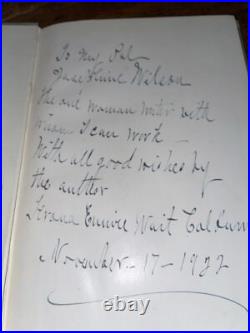 To My Pal
Josephine Wilson
the one woman writer with
whom I can work —
With all good wishes by
the author
Frona Eunice Wait Colburn
November - 17 - 1922